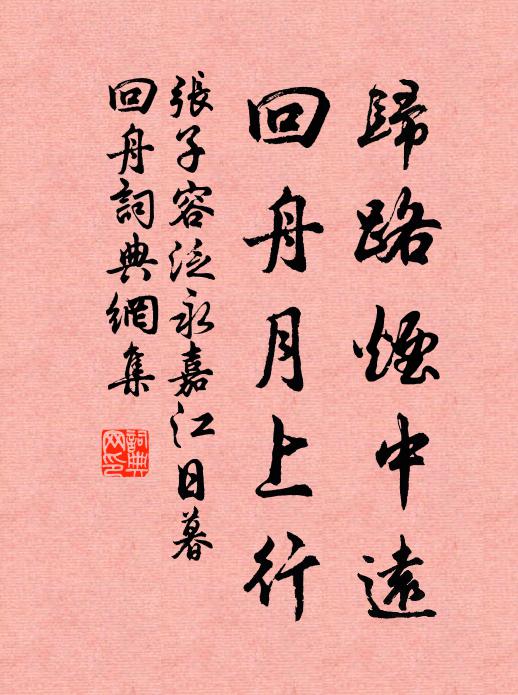 歸路煙中遠
回舟月上行
張子容泛永嘉江日暮
回舟詞典網集
詞典
网印